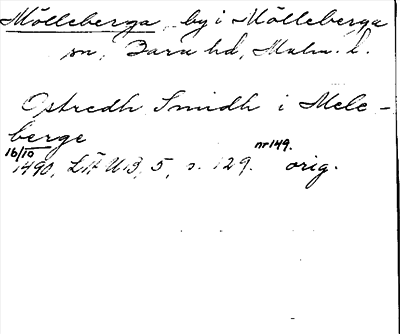 Mölleberga, by i Mölleberga
sn, Bara hd, Malm. l.
Ostredh Smidh i Mele-
berge
16/10 1490, LÄUB, 5, s. 129. nr 149. orig.